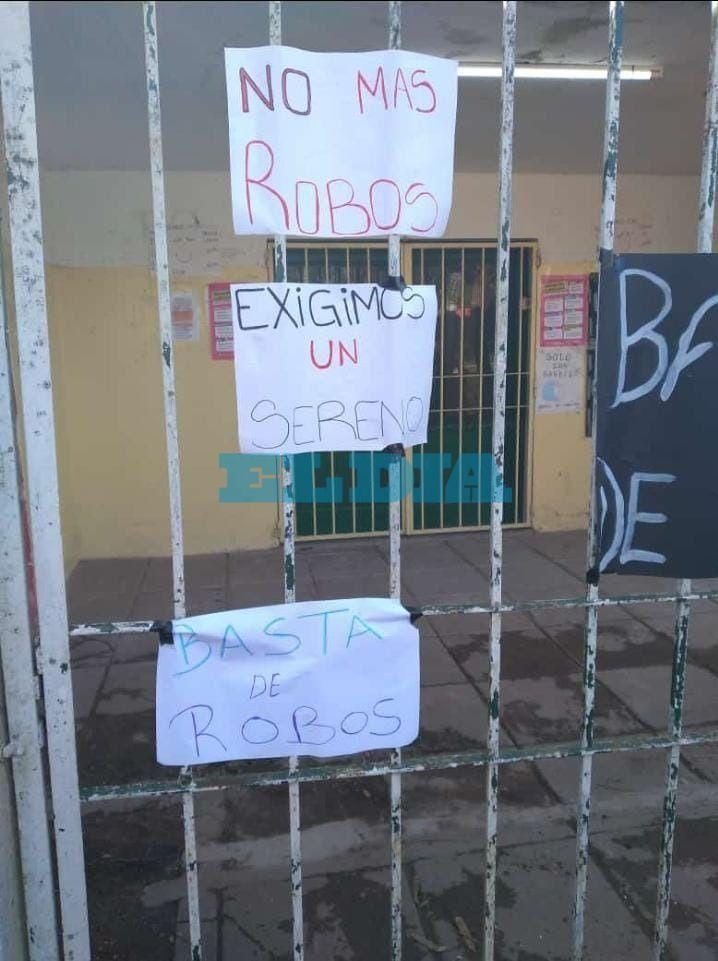 NO MAS
ROBOS
EXiGiMOS
UN
SERENO
ELDIA
BASTA
DE
ROBOS
BA
DE
SOLO